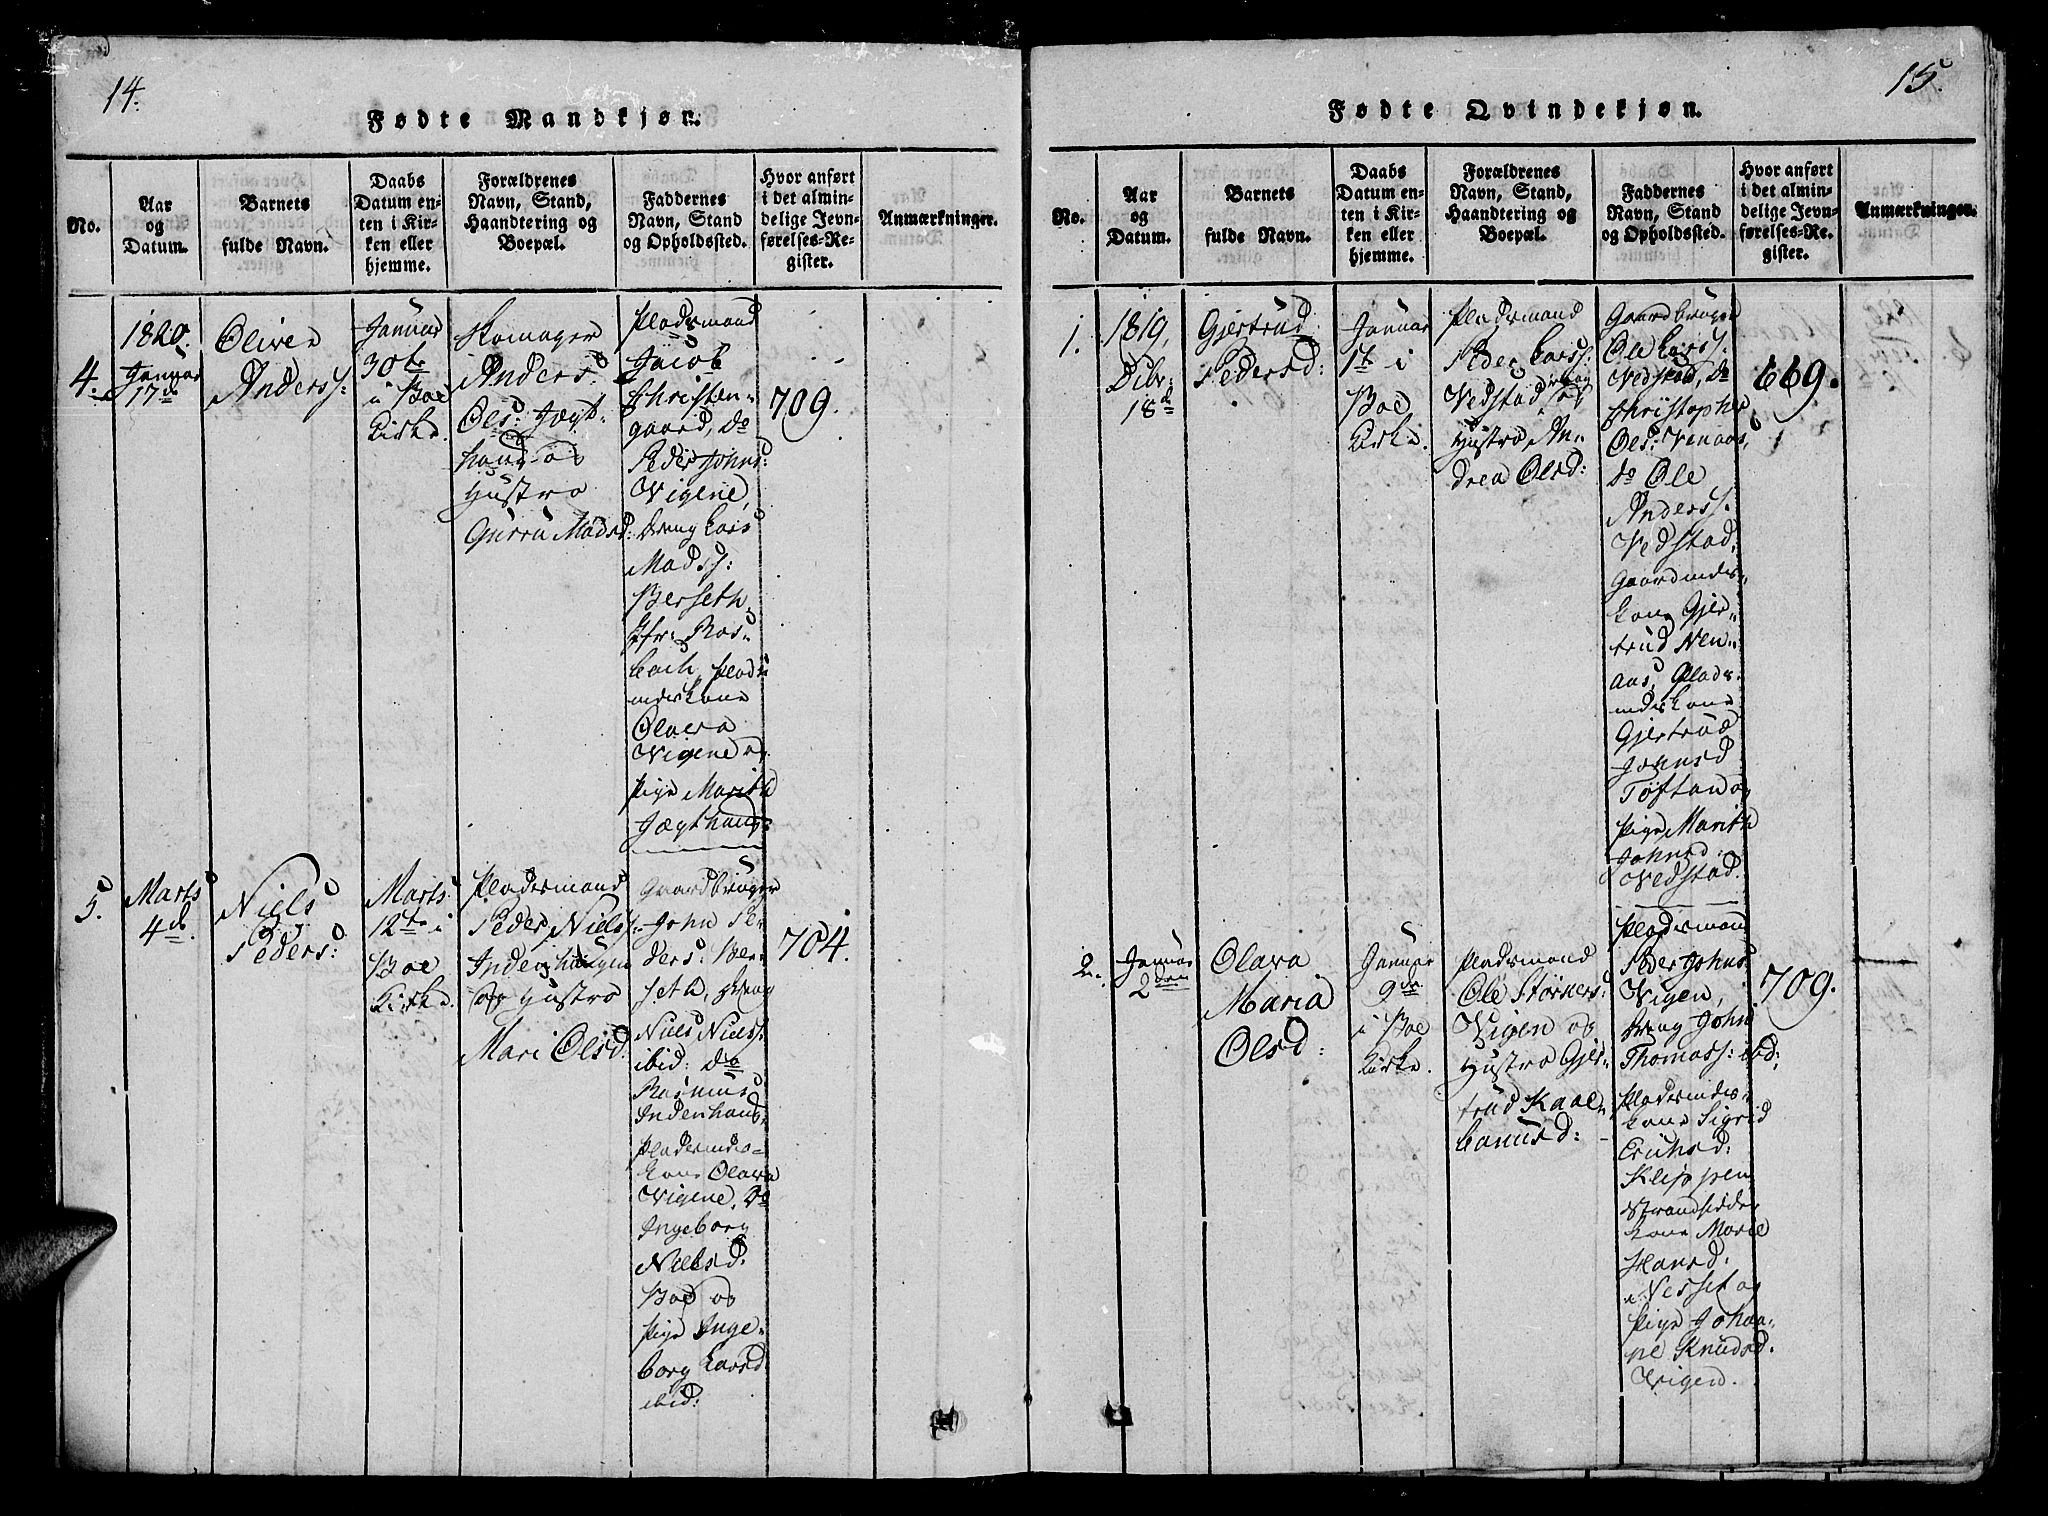 14.
Fødte Mandkjøn.
No.
Aar
og
Datum.
Barnets
fulde Navn.
Daabs
Datum en-
ten i Kir-
ken eller
hjemme.
Forældrenes
Navn, Stand,
Haandtering og
Boepæl.
Faddernes
Navn, Stand
og Opholdssted.
Hvor anført
i det almin-
delige Jevn-
førelses-Re-
gister.
Anmærkninger.
4.
1820.
Januar
17de
Oliver
Anderss:
Januar
30te
i Boe
Kirke.
Skomager
Anders
Ols: Jægt-
haug og
Hustro
Gurru Madsd:
Pladsmand
Jacob
Christen-
gaard, do
Peder Johns:
Vigene,
Dreng Lars
Madss:
Berseth,
Jfr: Ros-
bach, Plads-
mandskone
Olava
Vigene og
Pige Marith
Jægthaug.
709.
5.
Marts
4de
Niels
Peders:
Marts
12te i
Boe
Kirke.
Pladsmand
Peder Nielss:
Indenhaugen
og Hustro
Mari Olsd:
Gaardbruger
John Pe-
ders: Ber-
seth, Dreng
Niels Nielss:
ibid: do
Rasmus
Indenhaug,
Pladsmands-
kone Olava
Vigene, do
Ingeborg
Nielsd.
Boe og
Pige Inge-
borg Larsd
ibid:
704.
15.
Fødte Qvindekjøn.
No.
Aar
og
Datum.
Barnets
fulde Navn.
Daabs
Datum en-
ten i Kir-
ken eller
hjemme.
Forældrenes
Navn, Stand,
Haandtering og
Boepæl.
Faddernes
Navn, Stand
og Opholdssted.
Hvor anført
i det almin-
delige Jevn-
førelses-Re-
gister.
Anmærkninger.
1.
1819,
Dibr:
18de
Gjertrud
Pedersd:
Januar
1te i
Boe
Kirke.
Pladsmand
Peder Larss:
Vedstad og
Hustro An-
drea Olsd:
Gaardbruger
Ole Larss.
Vedstad, do
Christopher
Ols: Venaas,
do Ole
Anderss.
Vedstad.
Gaardmands-
kone Gjer-
trud Ven-
aas, Plads-
mandskone
Gjertrud
Johnsd
Tøftan og
Pige Marith
Johnsd:
Vedstad.
669.
2.
Januar
2den
Olava
Maria
Olsd:
Januar
9de
i Boe
Kirke.
Pladsmand
Ole Størkers:
Vigen og
Hustro Gjer-
trud Kaal-
banusd:
Pladsmand
Peder Johns:
Vigen,
Dreng John
Thomass: ibid:
Pladsmands-
kone Sigrid
Erichsd:
Kleppen
Strandsidder
kone Marie
Hansd:
Nesset og
Pige Johan-
ne Knudsd.
Vigen.
709.